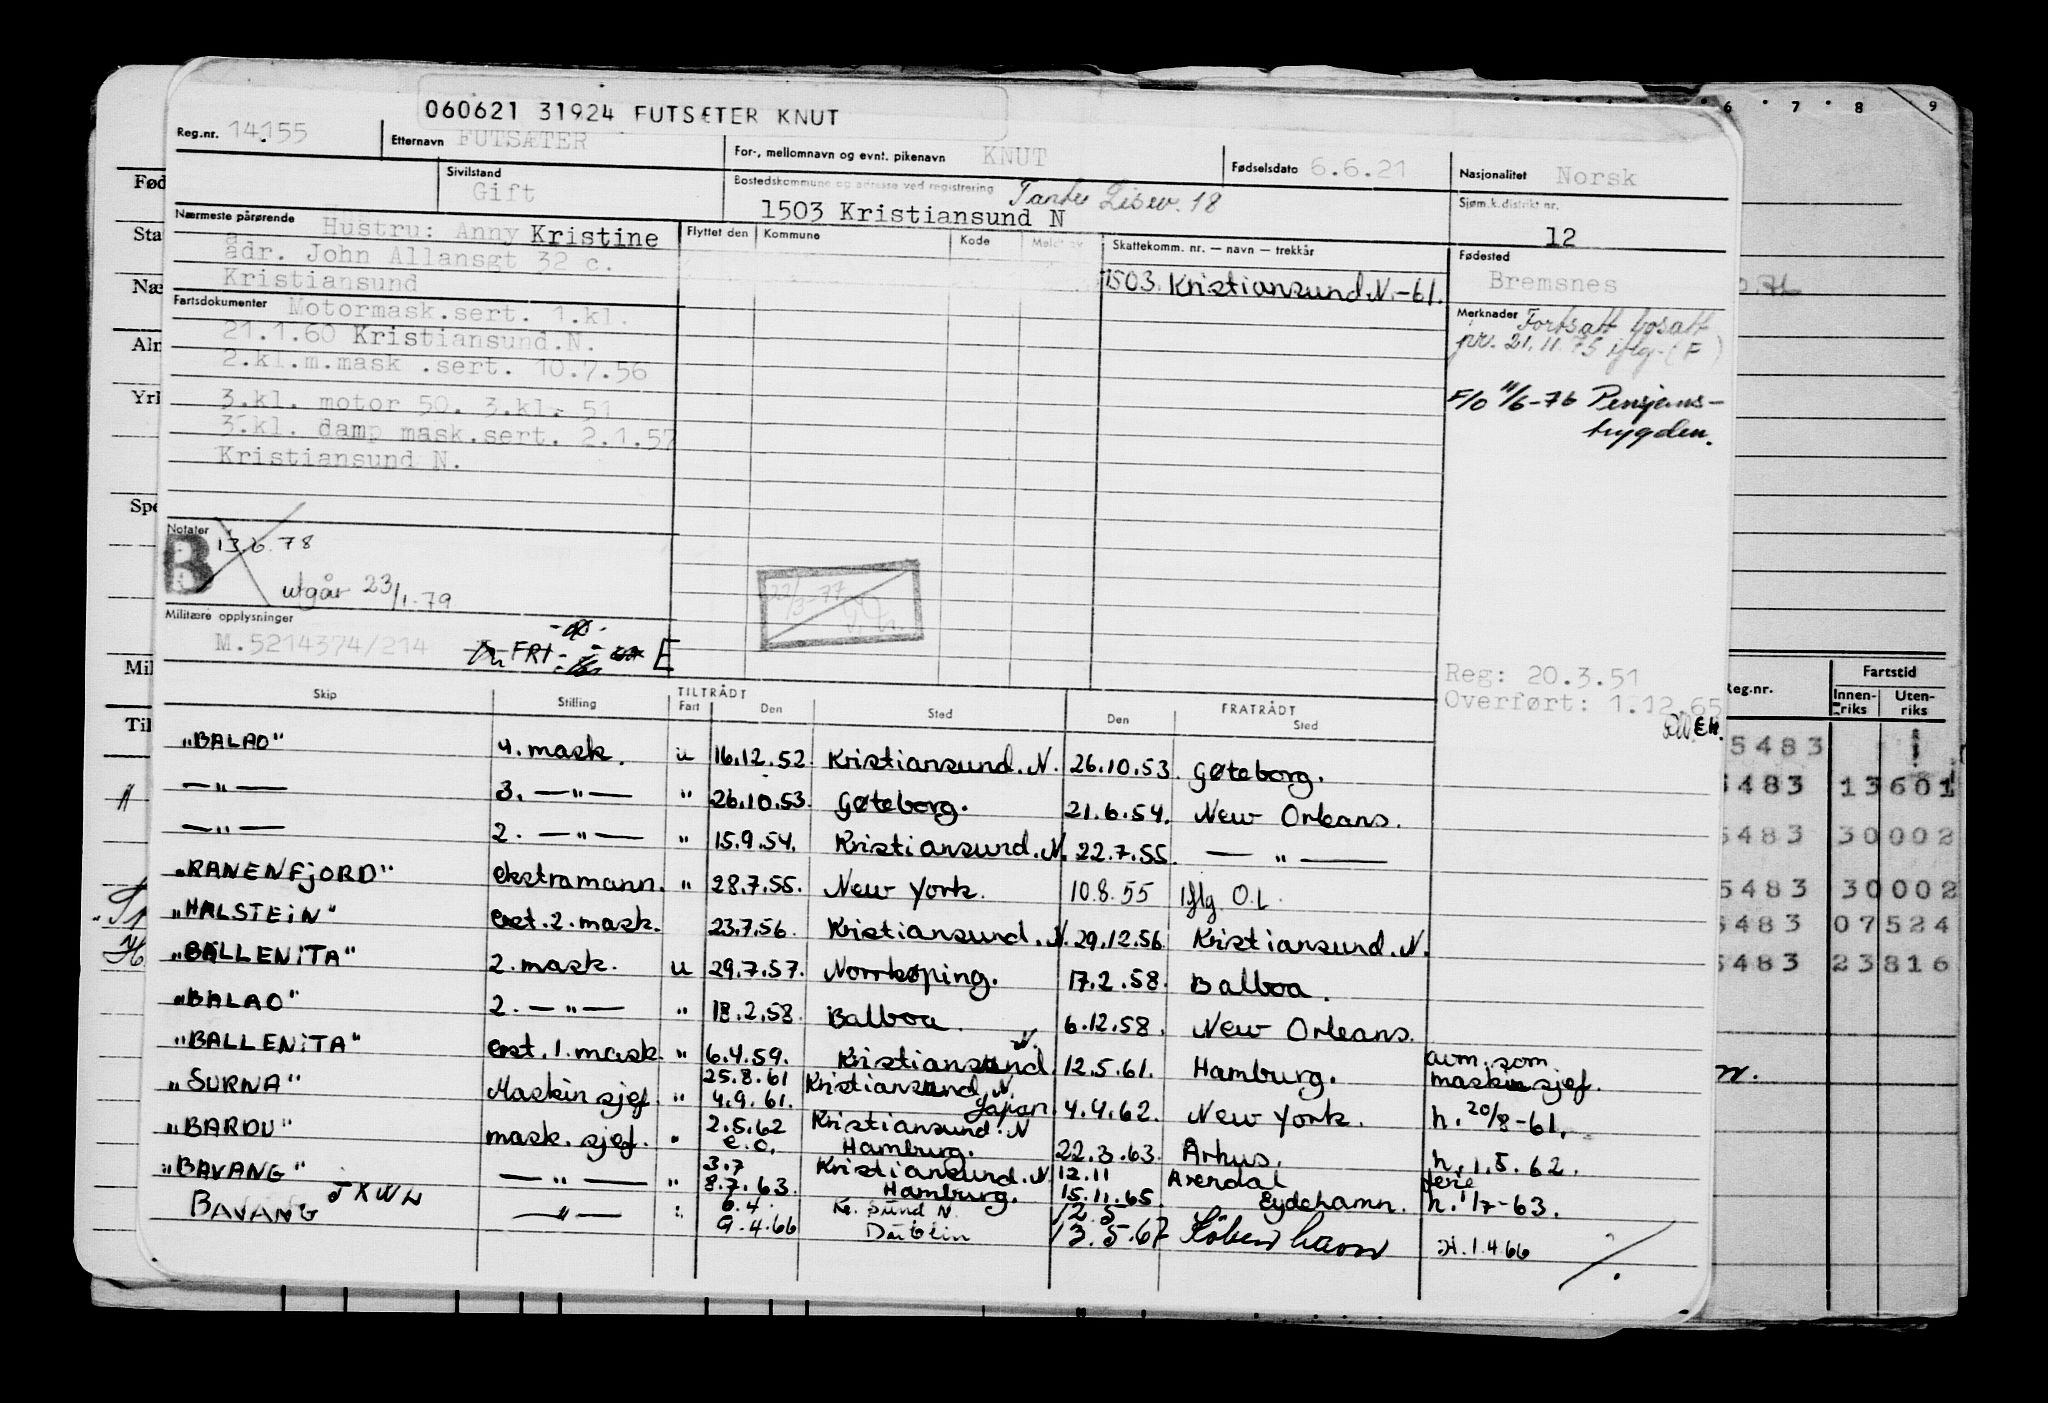 060621 31924 FUTSÆTER KNUT
Reg.nr. 14155 Etternavn FUTSÆTER For-, mellomnavn og evnt. pikenavn KNUT Fødselsdato 6.6.21 Nasjonalitet Norsk
Sivilstand Gift Bostedskommune og adresse ved registrering 1503 Kristiansund N 18 Sjøm.k.distrikt nr. 12
Nærmeste pårørende Hustru: Anny Kristine
adr. John Allansgt 32 c.
Kristiansund
Flyttet den Kommune Kode Skattekomm. nr. — navn — trekkår
1503. Kristiansund N.-61.
Fødested Bremsnes
Fartsdokumenter Motormask.sert. 1.kl.
21.1.60 Kristiansund.N.
2.kl.m.mask .sert. 10.7.56
3.kl. motor 50. 3.kl. 51
3.kl. damp mask.sert. 2.1.57
Kristiansund N.
Merknader Fortsatt bosatt
pr. 21.11.75 iflg. (F)
F/O 11/6-76 Pensjons-
trygden.
Notater
B 13.6.78
utgår 23/1-79
22/3-77
Militære opplysninger
M.5214374/214 FRI E
Reg: 20.3.51
Overført: 1.12.65
EH.
Skip Stilling TILTRÅDT Fart Den Sted FRATRÅDT Den Sted
"BALAO" 4. mask. u 16.12.52 Kristiansund. N. 26.10.53. Gøteborg.
—"— 3. —"— " 26.10.53. Gøteborg. 21.6.54. New Orleans.
—"— 2. —"— " 15.9.54. Kristiansund. N. 22.7.55. —"—
"RANENFJORD" ekstramann. " 28.7.55. New York. 10.8.55 Iflg O.L.
"HALSTEIN" erst. 2. mask. 23.7.56. Kristiansund. N. 29.12.56 Kristiansund. N.
"BALLENITA" 2. mask. u 29.7.57. Norrkøping. 17.2.58. Balboa.
"BALAO" 2. —"— " 18.2.58. Balboa. 6.12.58. New Orleans.
"BALLENITA" erst. 1. mask. " 6.4.59. Kristiansund N. 12.5.61. Hamburg. avm. som
maskinsjef.
"SURNA" Maskinsjef. " 25.8.61 Kristiansund N.
4.9.61. Japan. 4.4.62. New York. h. 20/8-61.
"BARDU" mask. sjef. " 2.5.62 Kristiansund. N
e.o. Hamburg. 22.3.63. Århus. h. 1.5.62.
"BAVANG" —"— " 3.7 Kristiansund. N 12.11 Arendal ferie
8.7.63. Hamburg. 15.11.65. Eydehamn. h. 1/7-63.
BAVANG JXWN —"— " 6.4. Kr. sund N. 12.5
9.4.66 Dublin 13.5.67 København H.1.4.66
Fød
Sta
Næ
Aln
Yrk
Spe
Mil
Til
6 7 8 9
Reg.nr. Fartstid
Innen-
riks
Uten-
riks
5483
5483 13601
5483 30002
5483 30002
5483 07524
5483 23816